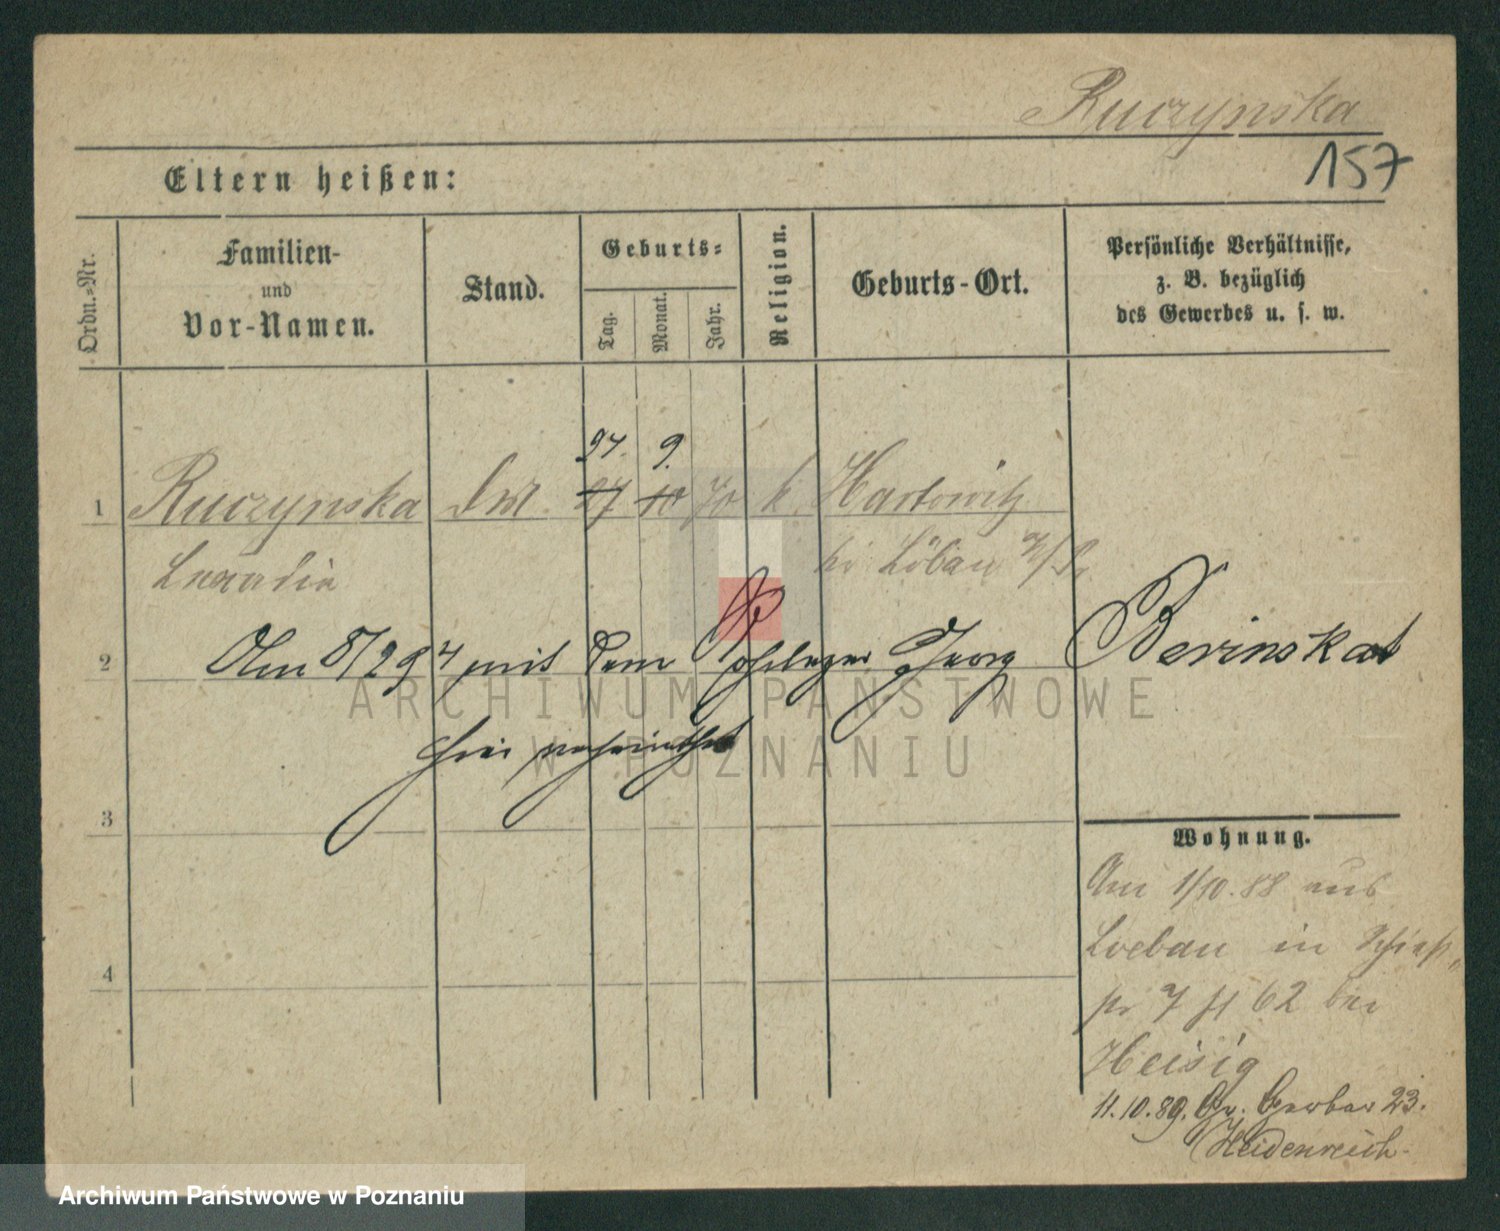 Ruczynska
157
Eltern heißen:
Ordn.-Nr.
Familien-
und
Vor-Namen.
Stand.
Geburts-
Tag.
Monat.
Jahr.
Religion.
Geburts-Ort.
Persönliche Verhältnisse,
z. B. bezüglich
des Gewerbes u. s. w.
27. 9.
1 Ruczynska 27 10 70 k. Hartowitz
Leocadia bei Löbau W/Pr
2 Am 8/2 94 mit dem Georg Berinskat
hier verheirathet
3
Wohnung.
4
Am 1/10.88 aus
Loebau in Schieß
62 bei
Heisig
11.10.89. Gr. Gerber 23.
Heidenreich.
ARCHIWUM PAŃSTWOWE
W POZNANIU
Archiwum Państwowe w Poznaniu